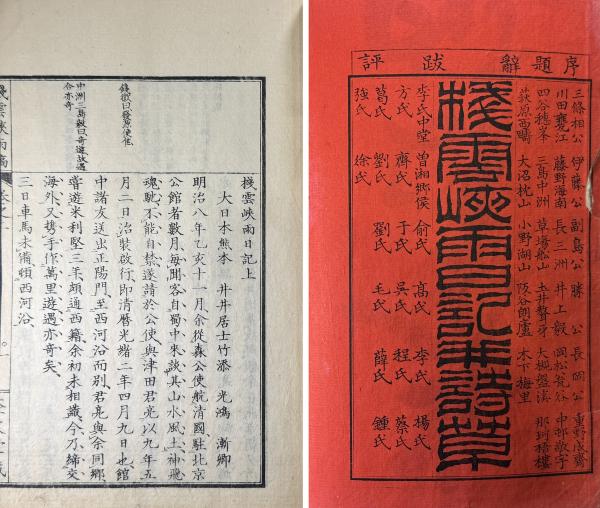 序題辭 跋 評
三條相公 伊藤公 副島公 勝公 長岡公 重野成齋
川田甕江 藤野海南 長三洲 井上毅 岡松瓮谷 中邨敬宇
四谷穗峯 三島中洲 草場船山 土井聱牙 大槻盤溪 那珂梧樓
荻原西疇 大沼枕山 小野湖山 阪谷朗廬 木下梅里
棧雲峽雨日記并詩草
李氏中堂 曾湘鄉侯 俞氏 高氏 李氏 楊氏
方氏 齊氏 于氏 吳氏 程氏 蔡氏
葛氏 劉氏 劉氏 毛氏 薛氏 鍾氏
強氏 徐氏
棧雲峽雨日記上
大日本熊本 井井居士竹添 光鴻 漸卿
明治八年乙亥十一月余從森公使航清國駐北京
公館者數月每聞客自蜀中來談其山水風土神飛
魂馳不能自禁遂請於公使與津田君亮以九年五
月二日治裝啟行即清曆光緒二年四月九日也館
中諸友送出正陽門至西河沿而別君亮與余同鄉
嘗遊米利堅三年頗通西籍余初未相識今乃締交
海外又攜手作萬里遊遇亦奇矣
三日車馬未備頓西河沿
中洲三島毅曰奇遊故遇
合亦奇
棧雲峽雨稿